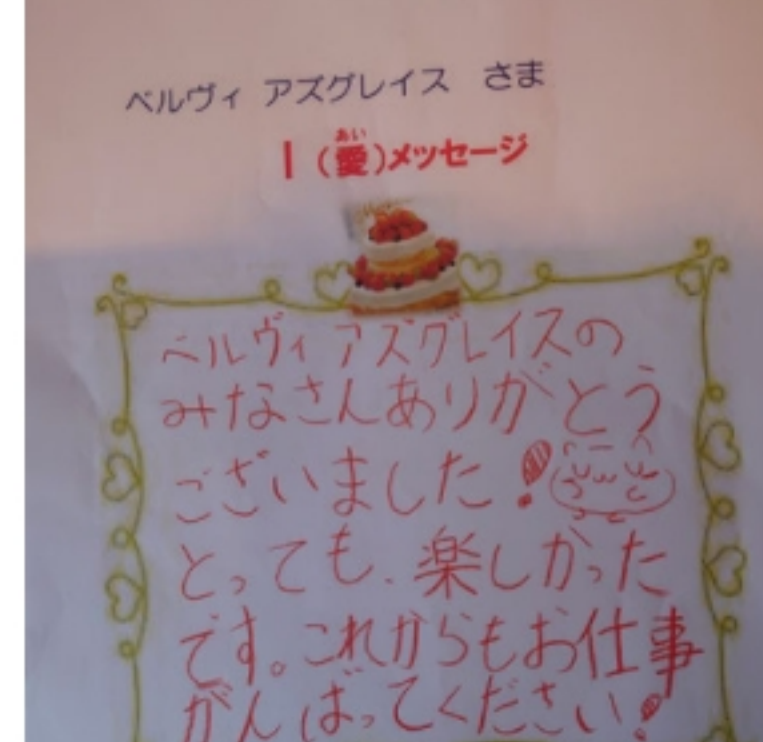 ベルヴィ アズグレイス さま
I (愛)メッセージ
あい
ベルヴィ アズグレイスの
みなさんありがとう
ございました!
とっても、楽しかった
です。これからもお仕事
がんばってください!